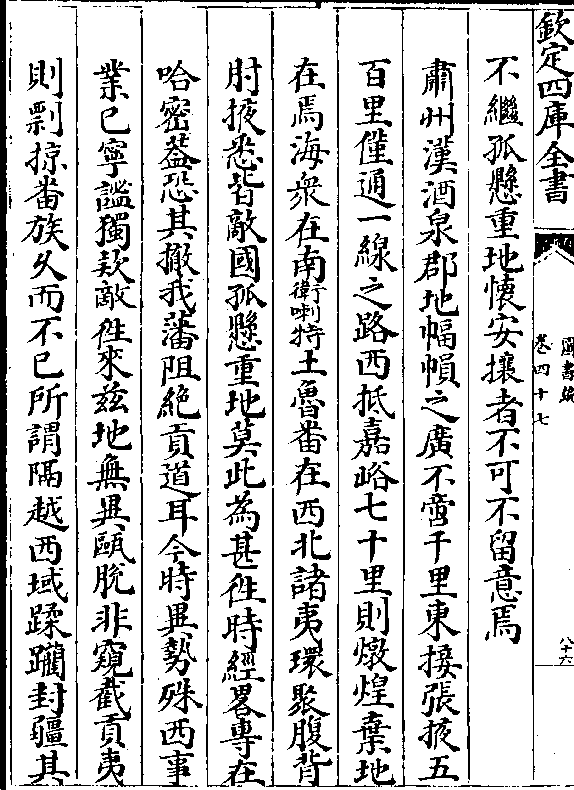 欽定四庫全書
圖書編
卷四十七
八十六
不繼孤懸重地懷安攘者不可不留意焉
肅州漢酒泉郡地幅幀之廣不啻千里東接張掖五
百里僅通一線之路西抵嘉峪七十里則燉煌棄地
在焉海衆在南衛喇特土魯番在西北諸夷環聚腹背
肘掖悉皆敵國孤懸重地莫此為甚徃時經畧專在
哈密葢恐其撤我藩阻絶貢道耳今時異勢殊西事
業已寧謐獨欵敵徃來兹地無異甌脫非窺截貢夷
則剽掠畨族久而不已所謂隔越西域蹂躪封疆其